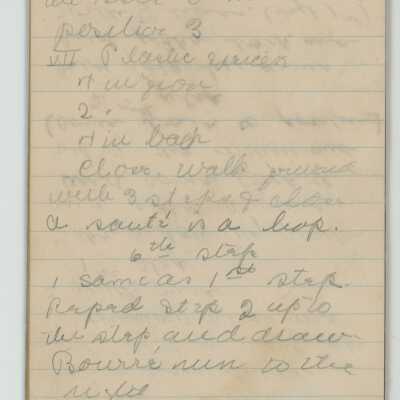 position 3
VII Plastic
rt in
2.
rt in back
Close. walk forward
with 3 steps & close
a sauté is a hop.
6th step
1 same as 1st step.
Repeat step 2 up to
the step and draw
Bourré run to the
right